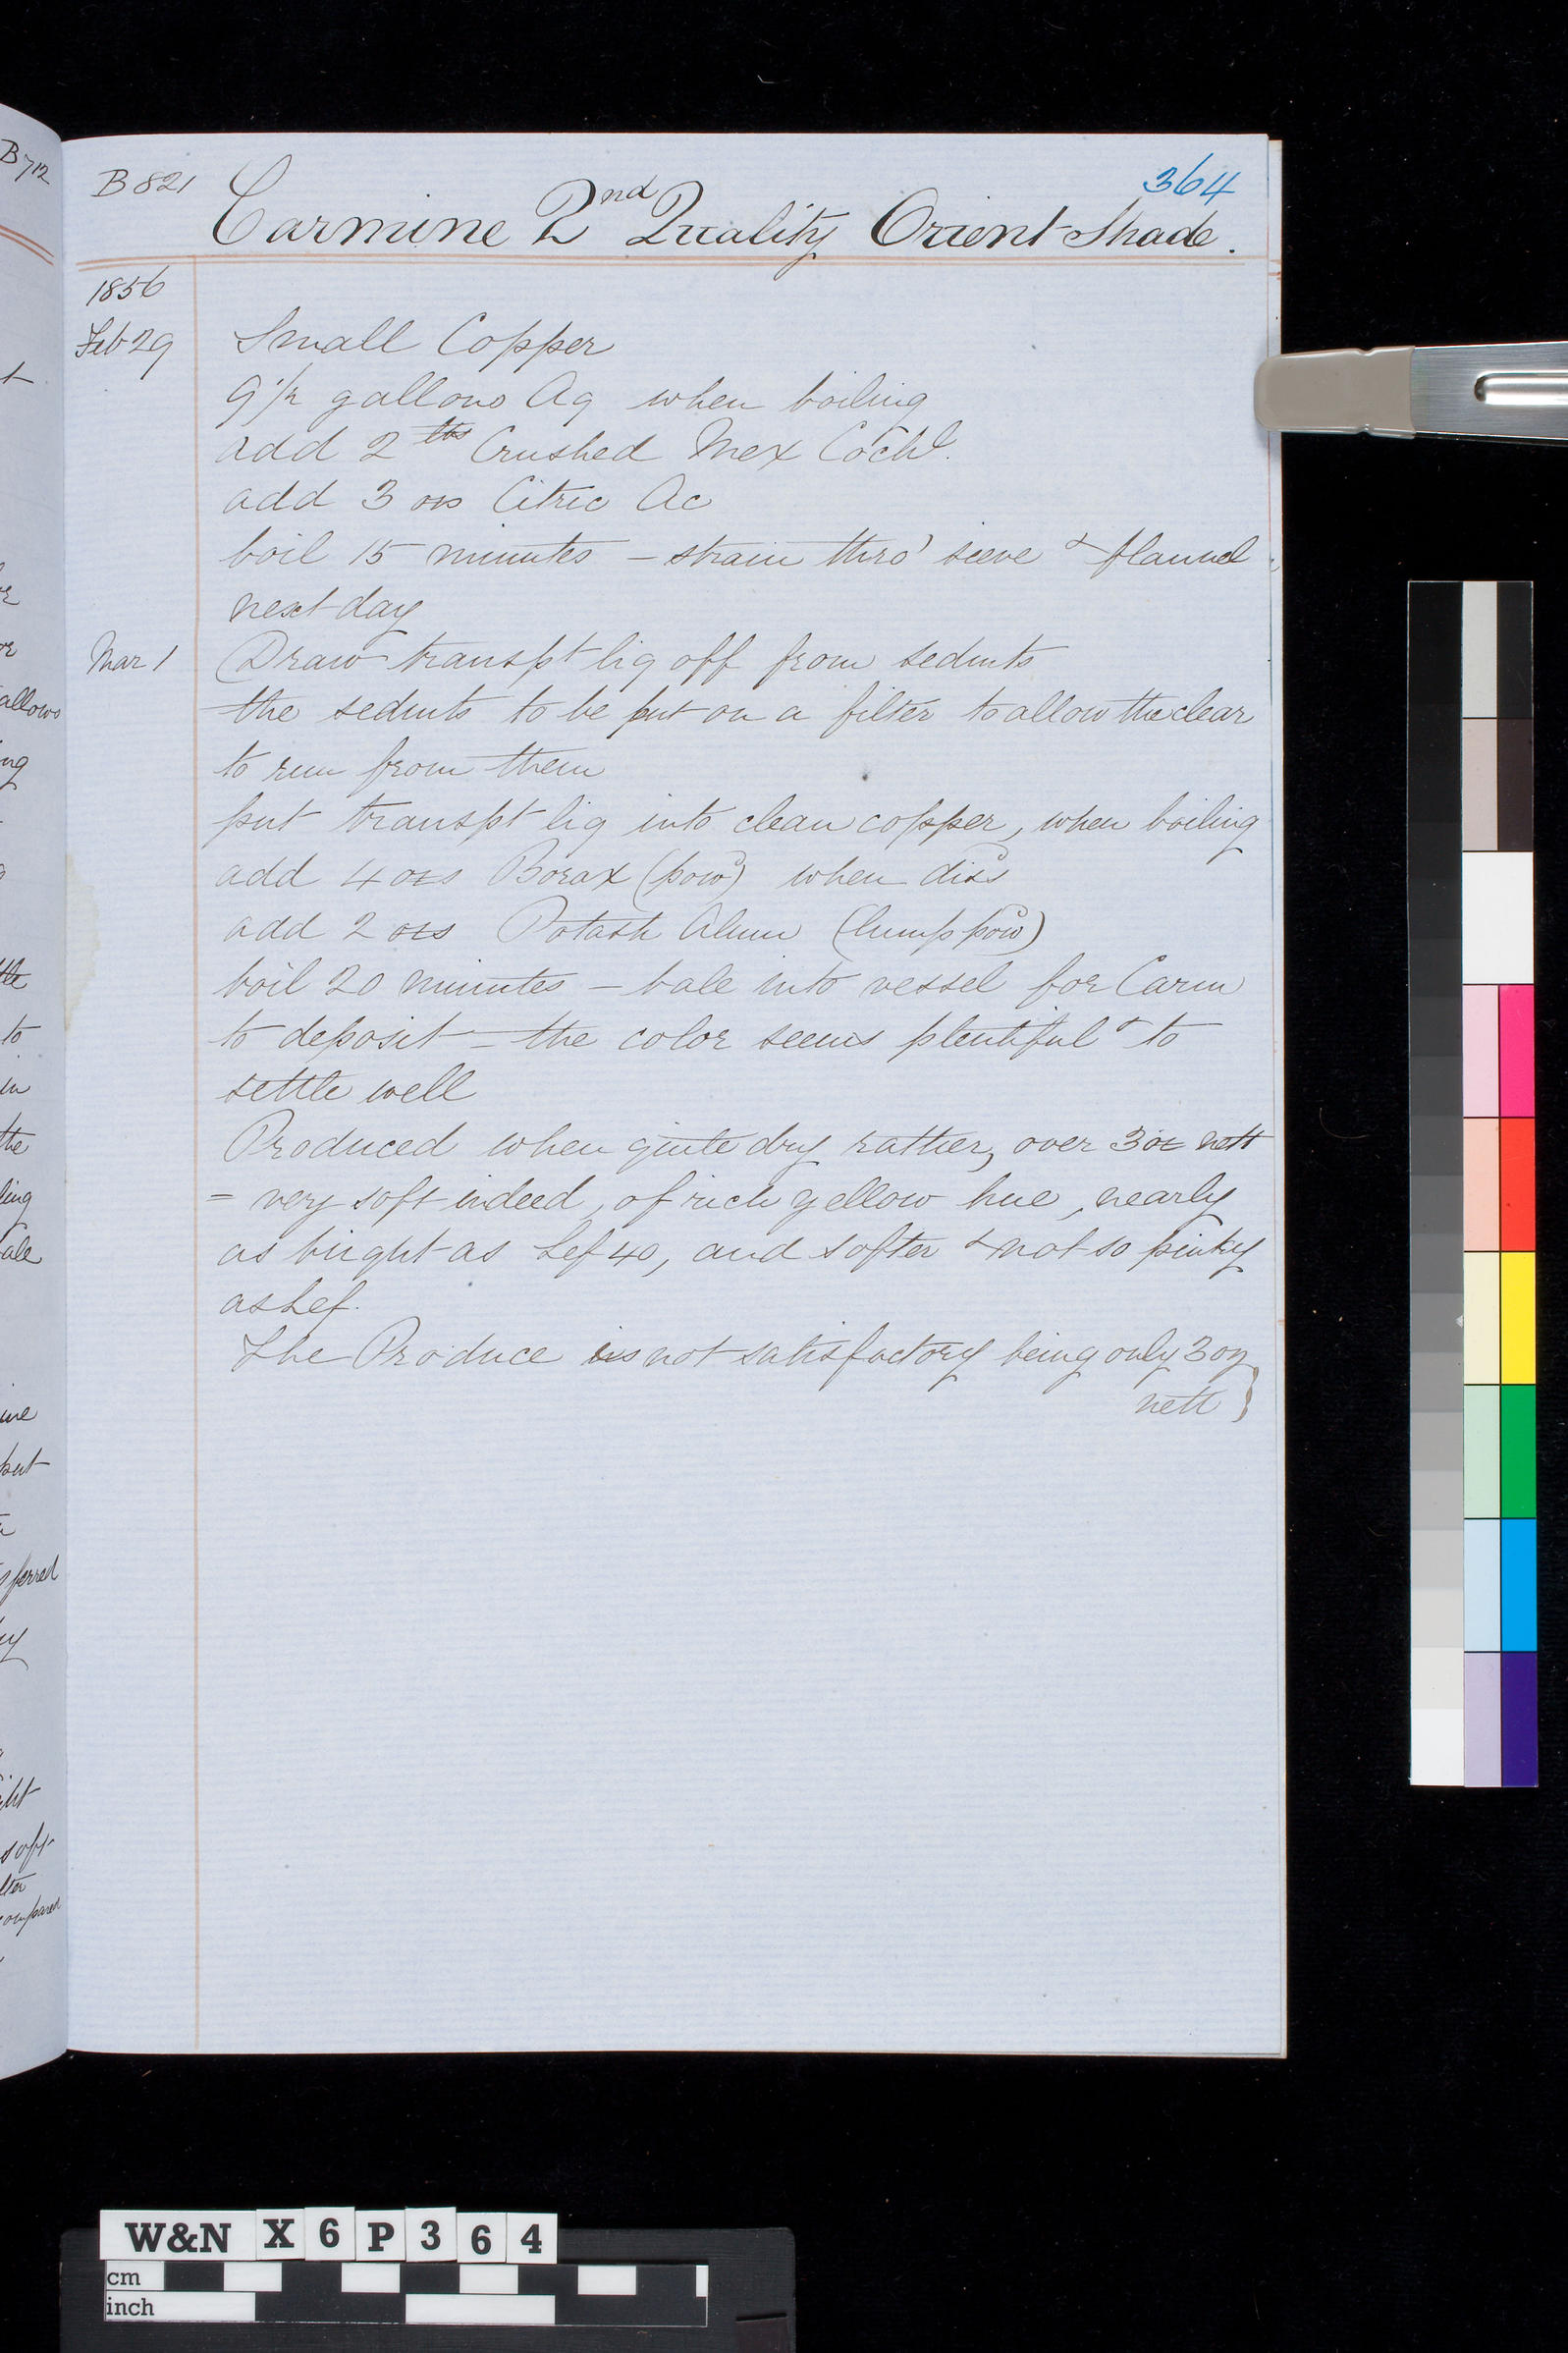 B 712
B 821
364
Carmine 2nd Quality Orient Shade.
1856
Feb 29 Small Copper
9 1/2 gallons Aq when boiling
add 2 lbs Crushed Mex Cochl.
add 3 ozs Citric Ac
boil 15 minutes – strain thro' sieve & flannel
next day
Mar 1 Draw transpt liq off from sedmts
the sedmts to be put on a filter to allow the clear
to run from them
put transpt liq into clean copper, when boiling
add 4 ozs Borax (powd) when diss
add 2 ozs Potash Alum (lump powd)
boil 20 minutes – bale into vessel for Carm
to deposit – the color seems plentiful & to
settle well
Produced when quite dry rather, over 3 oz nett
= very soft indeed, of rich yellow hue, nearly
as bright as Lef 40, and softer & not so pinky
as Lef.
The Produce is not satisfactory being only 3 oz
nett }
W&N X6P364
cm
inch